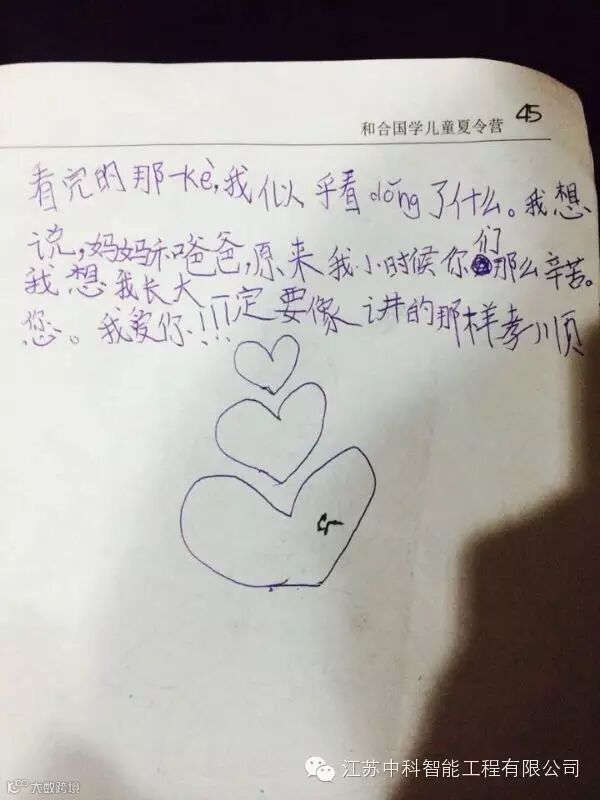 45
和合国学儿童夏令营
看完的那一kè,我似乎看dǒng了什么。我想
说,妈妈和爸爸,原来我小时候你们那么辛苦。
我想我长大一定要像讲的那样孝顺
您。我爱你!!!
江苏中科智能工程有限公司
大数跨境